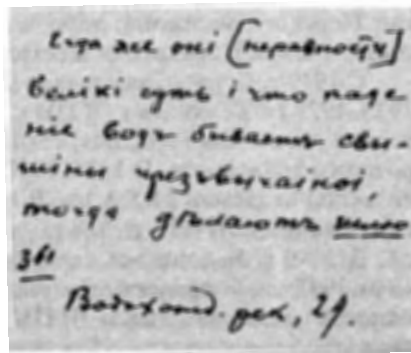 Егда же онѣ [неравности]
велікі суть і что паде
ніе водъ бываетъ свы-
шіны чрезвычаіноі,
тогда дѣлаютъ шлю
зы
Водоход. рек, 29.